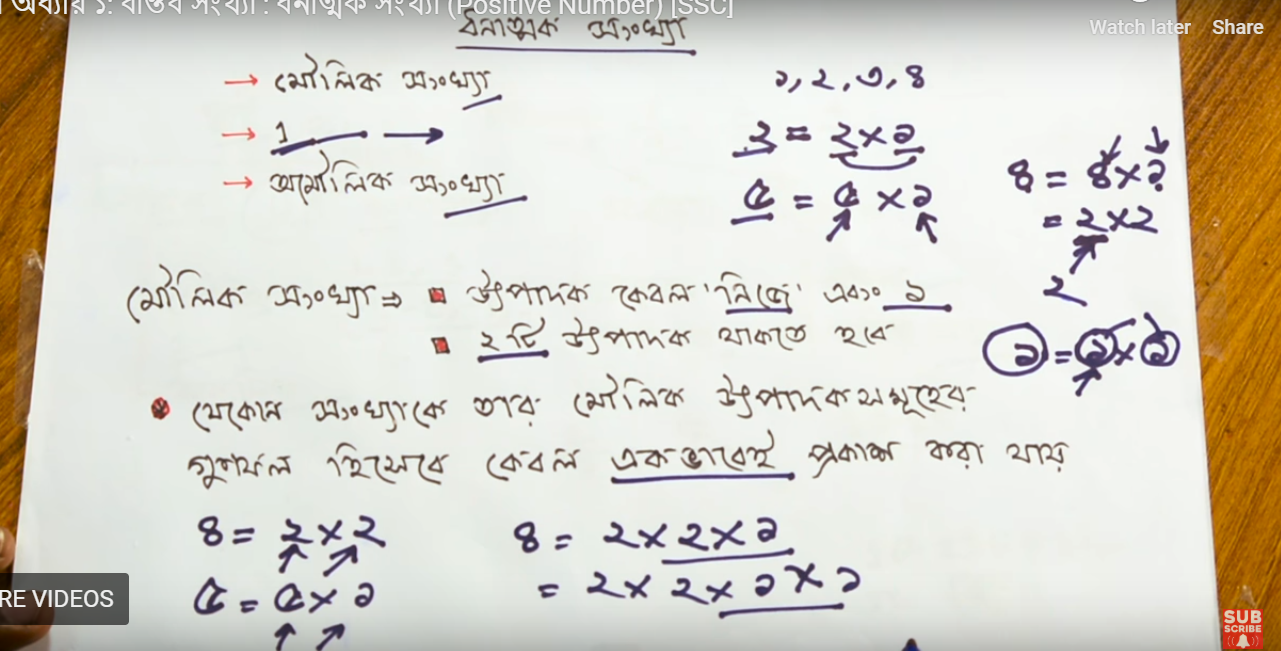 অধ্যায় ১: বাস্তব সংখ্যা : ধনাত্মক সংখ্যা (Positive Number) [SSC]
Watch later Share
ধনাত্মক সংখ্যা
→ মৌলিক সংখ্যা
→ 1 →
→ অমৌলিক সংখ্যা
১, ২, ৩, ৪
২ = ২×১
৫ = ৫ × ১
৪ = ৪×১
= ২×২
২
১ = ১×১
মৌলিক সংখ্যা ⇒ ▪ উৎপাদক কেবল 'নিজে' এবং ১
▪ ২ টি উৎপাদক থাকতে হবে
যেকোন সংখ্যাকে তার মৌলিক উৎপাদকসমূহের
গুণফল হিসেবে কেবল একভাবেই প্রকাশ করা যায়
৪ = ২×২
৫ = ৫×১
৪ = ২×২×১
= ২×২×১×১
RE VIDEOS
SUBSCRIBE